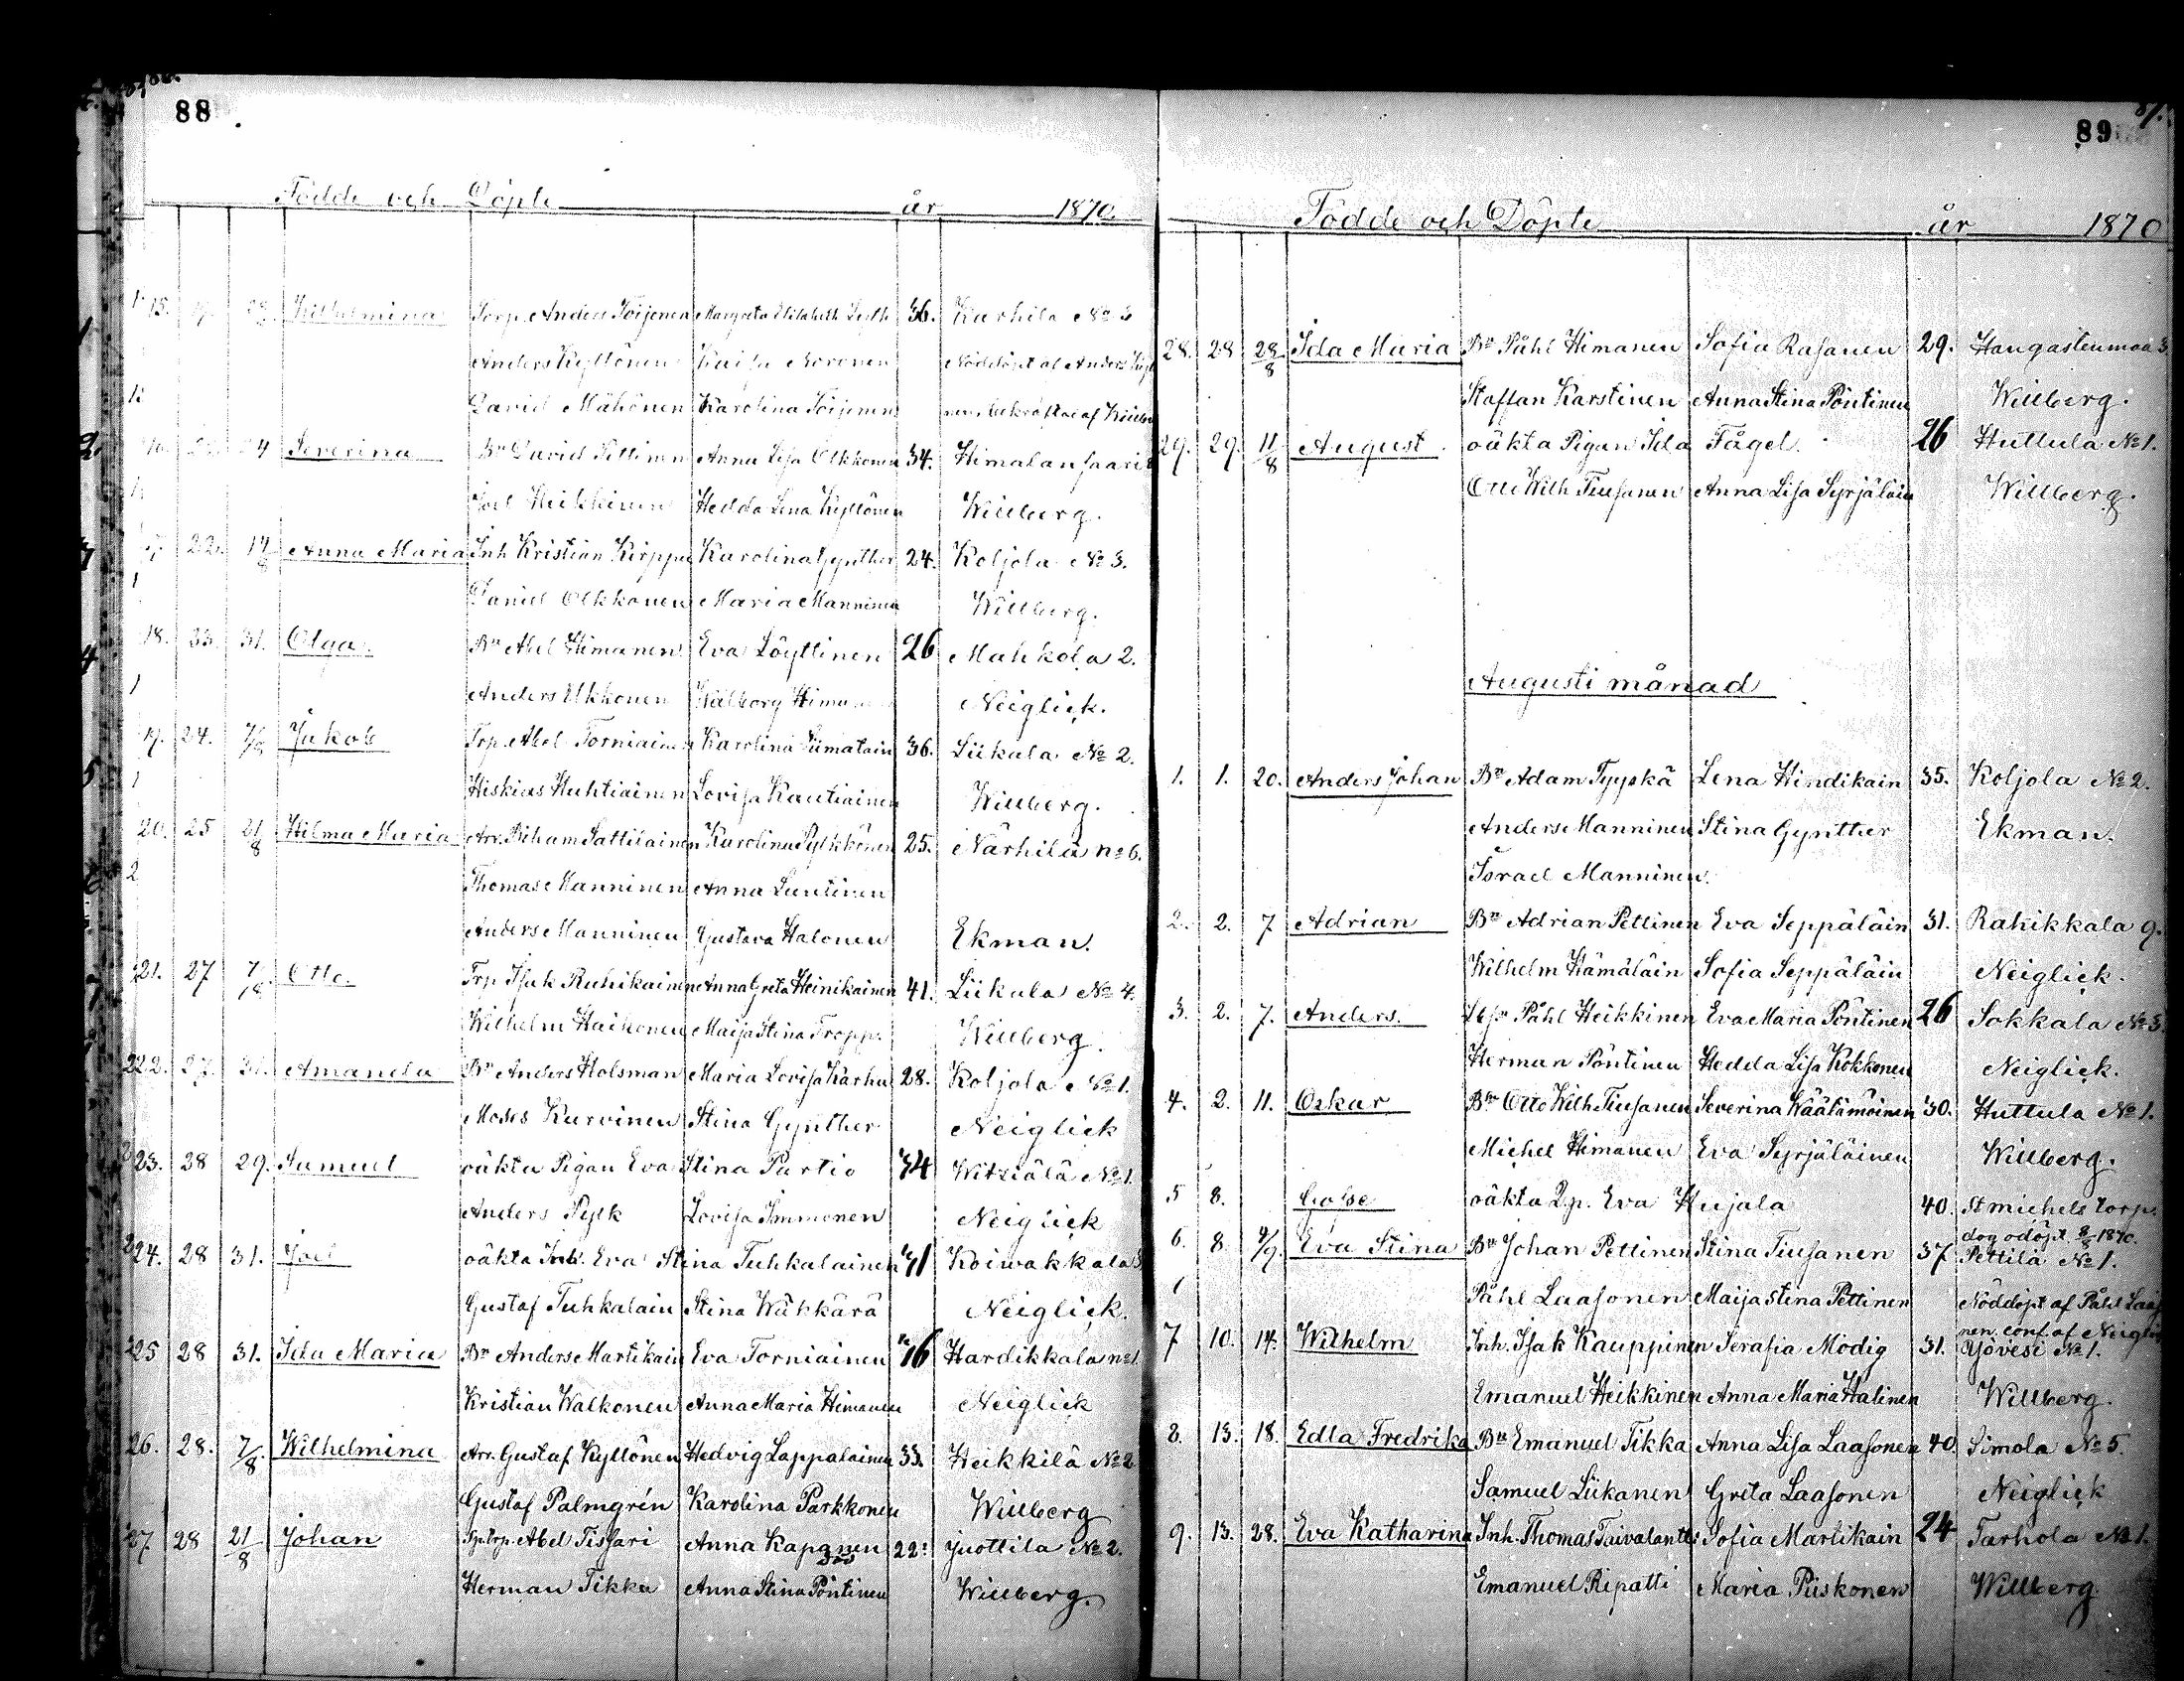 88
Födde och Döpte år 1870.
15. Wilhelmina Torp. Anders Toijonen Margreta Elisabeth 36. Karhila No 3
Anders Kyllönen Kaisa Noronen Nöddöpt af Anders
David Mähönen Karolina Toijonen bekräftad af
24 Severina Bn David Pettinen Anna Lisa Olkkonen 34. Himalansaari
Joel Heikkinen Hedda Lena Kyllönen Willberg.
22. 14/8 Anna Maria Inh Kristian Kirppu Karolina Gynther 24. Koljola No 3.
Daniel Olkkonen Maria Manninen Willberg.
18. 23. 31. Olga. Bn Abel Himanen Eva Löyttinen 26 Mahkola 2.
Anders Ukkonen Walborg Neiglick.
19. 24. 7/8 Jakob Trp. Abel Torniainen Karolina Liimatain 36. Liikala No 2.
Hiskias Huhtiainen Lovisa Kautiainen Willberg.
20. 25 21/8 Hilma Maria Arr. Abraham Sattilainen Karolina Pylkkönen 25. Närhilä no 6.
Thomas Manninen Anna Luntinen
Anders Manninen Gustava Halonen Ekman.
21. 27 7/8 Otto. Trp Isak Ruhikainen Anna Greta Heinikainen 41. Liikala No 4.
Wilhelm Haikonen Maija Stina Tropp. Willberg.
22. 27. 31. Amanda Bn Anders Holsman Maria Lovisa Karhu 28. Koljola No 1.
Moses Kurvinen Stina Gynther Neiglick
23. 28 29. Samuel oäkta Pigan Eva Stina Partio 34 Witsiälä No 1.
Anders Pylk Lovisa Immonen Neiglick
24. 28 31. Joel oäkta Inh. Eva Stina Tuhkalainen 41 Koiwakkala 3
Gustaf Tuhkalain Stina Wäkkärä Neiglick.
25 28 31. Ida Maria Bn Anders Martikain Eva Torniainen 16 Hardikkala no 1.
Kristian Walkonen Anna Maria Himanen Neiglick
26. 28. 7/8. Wilhelmina Arr. Gustaf Kyllönen Hedvig Lappalainen 33. Heikkilä No 2
Gustaf Palmgrén Karolina Parkkonen Willberg
27 28 21/8 Johan Sp.torp. Abel Tissari Anna Kapanen 22. Juottila No 2.
Herman Tikka Anna Stina Pöntinen Willberg.
89
Födde och Döpte år 1870
28. 28 28/8 Ida Maria Bn Påhl Himanen Sofia Rasanen 29. Hangastenmaa 3
Staffan Karstinen Anna Stina Pöntinen Willberg.
29. 29. 11/8 August. oäkta Pigan Ida Fågel. 26 Huttula No 1.
Otto Wilh Tiusanen Anna Lisa Syrjäläin Willberg.
Augusti månad
1. 1. 20. Anders Johan Bn Adam Tyyskä Lena Hindikain 35. Koljola No 2.
Anders Manninen Stina Gynther Ekman.
Israel Manninen.
2. 2. 7 Adrian Bn Adrian Pettinen Eva Seppäläin 31. Rahikkala 9.
Wilhelm Hämäläin Sofia Seppäläin Neiglick.
3. 2. 7. Anders. Påhl Heikkinen Eva Maria Pöntinen 26 Sokkala No 3.
Herman Pöntinen Hedda Lisa Kokkonen Neiglick.
4. 2. 11. Oskar Bn Otto Wilh. Tiusanen Severina Wäätämöinen 30. Huttula No 1.
Michel Himanen Eva Syrjäläinen Willberg.
5 8. Gosse oäkta Eva Kujala 40. St michels torp.
dog odöpt 8/8 1870.
6. 8 4/9. Eva Stina Bn Johan Pettinen Stina Tiusanen 37 Pettilä No 1.
Påhl Laasonen Maija Stina Pettinen Nöddöpt af Påhl Laaso
nen. conf. af Neiglick
7 10. 14. Wilhelm Inh. Isak Kauppinen Serafia Modig 31. Ojovesi No 1.
Emanuel Heikkinen Anna Maria Halinen Willberg.
8. 13. 18. Edla Fredrika Bn Emanuel Tikka Anna Lisa Laasonen 40. Simola No 5.
Samuel Liikanen Greta Laasonen Neiglick
9. 13. 28. Eva Katharina Inh. Thomas Taivalantti Sofia Martikain 24 Tarhola No 1.
Emanuel Ripatti Maria Piiskonen Willberg